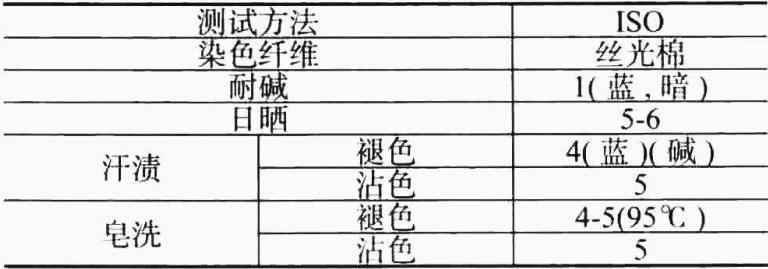 测试方法 ISO
染色纤维 丝光棉
耐碱 1(蓝,暗)
日晒 5-6
汗渍 褪色 4(蓝)(碱)
沾色 5
皂洗 褪色 4-5(95℃)
沾色 5